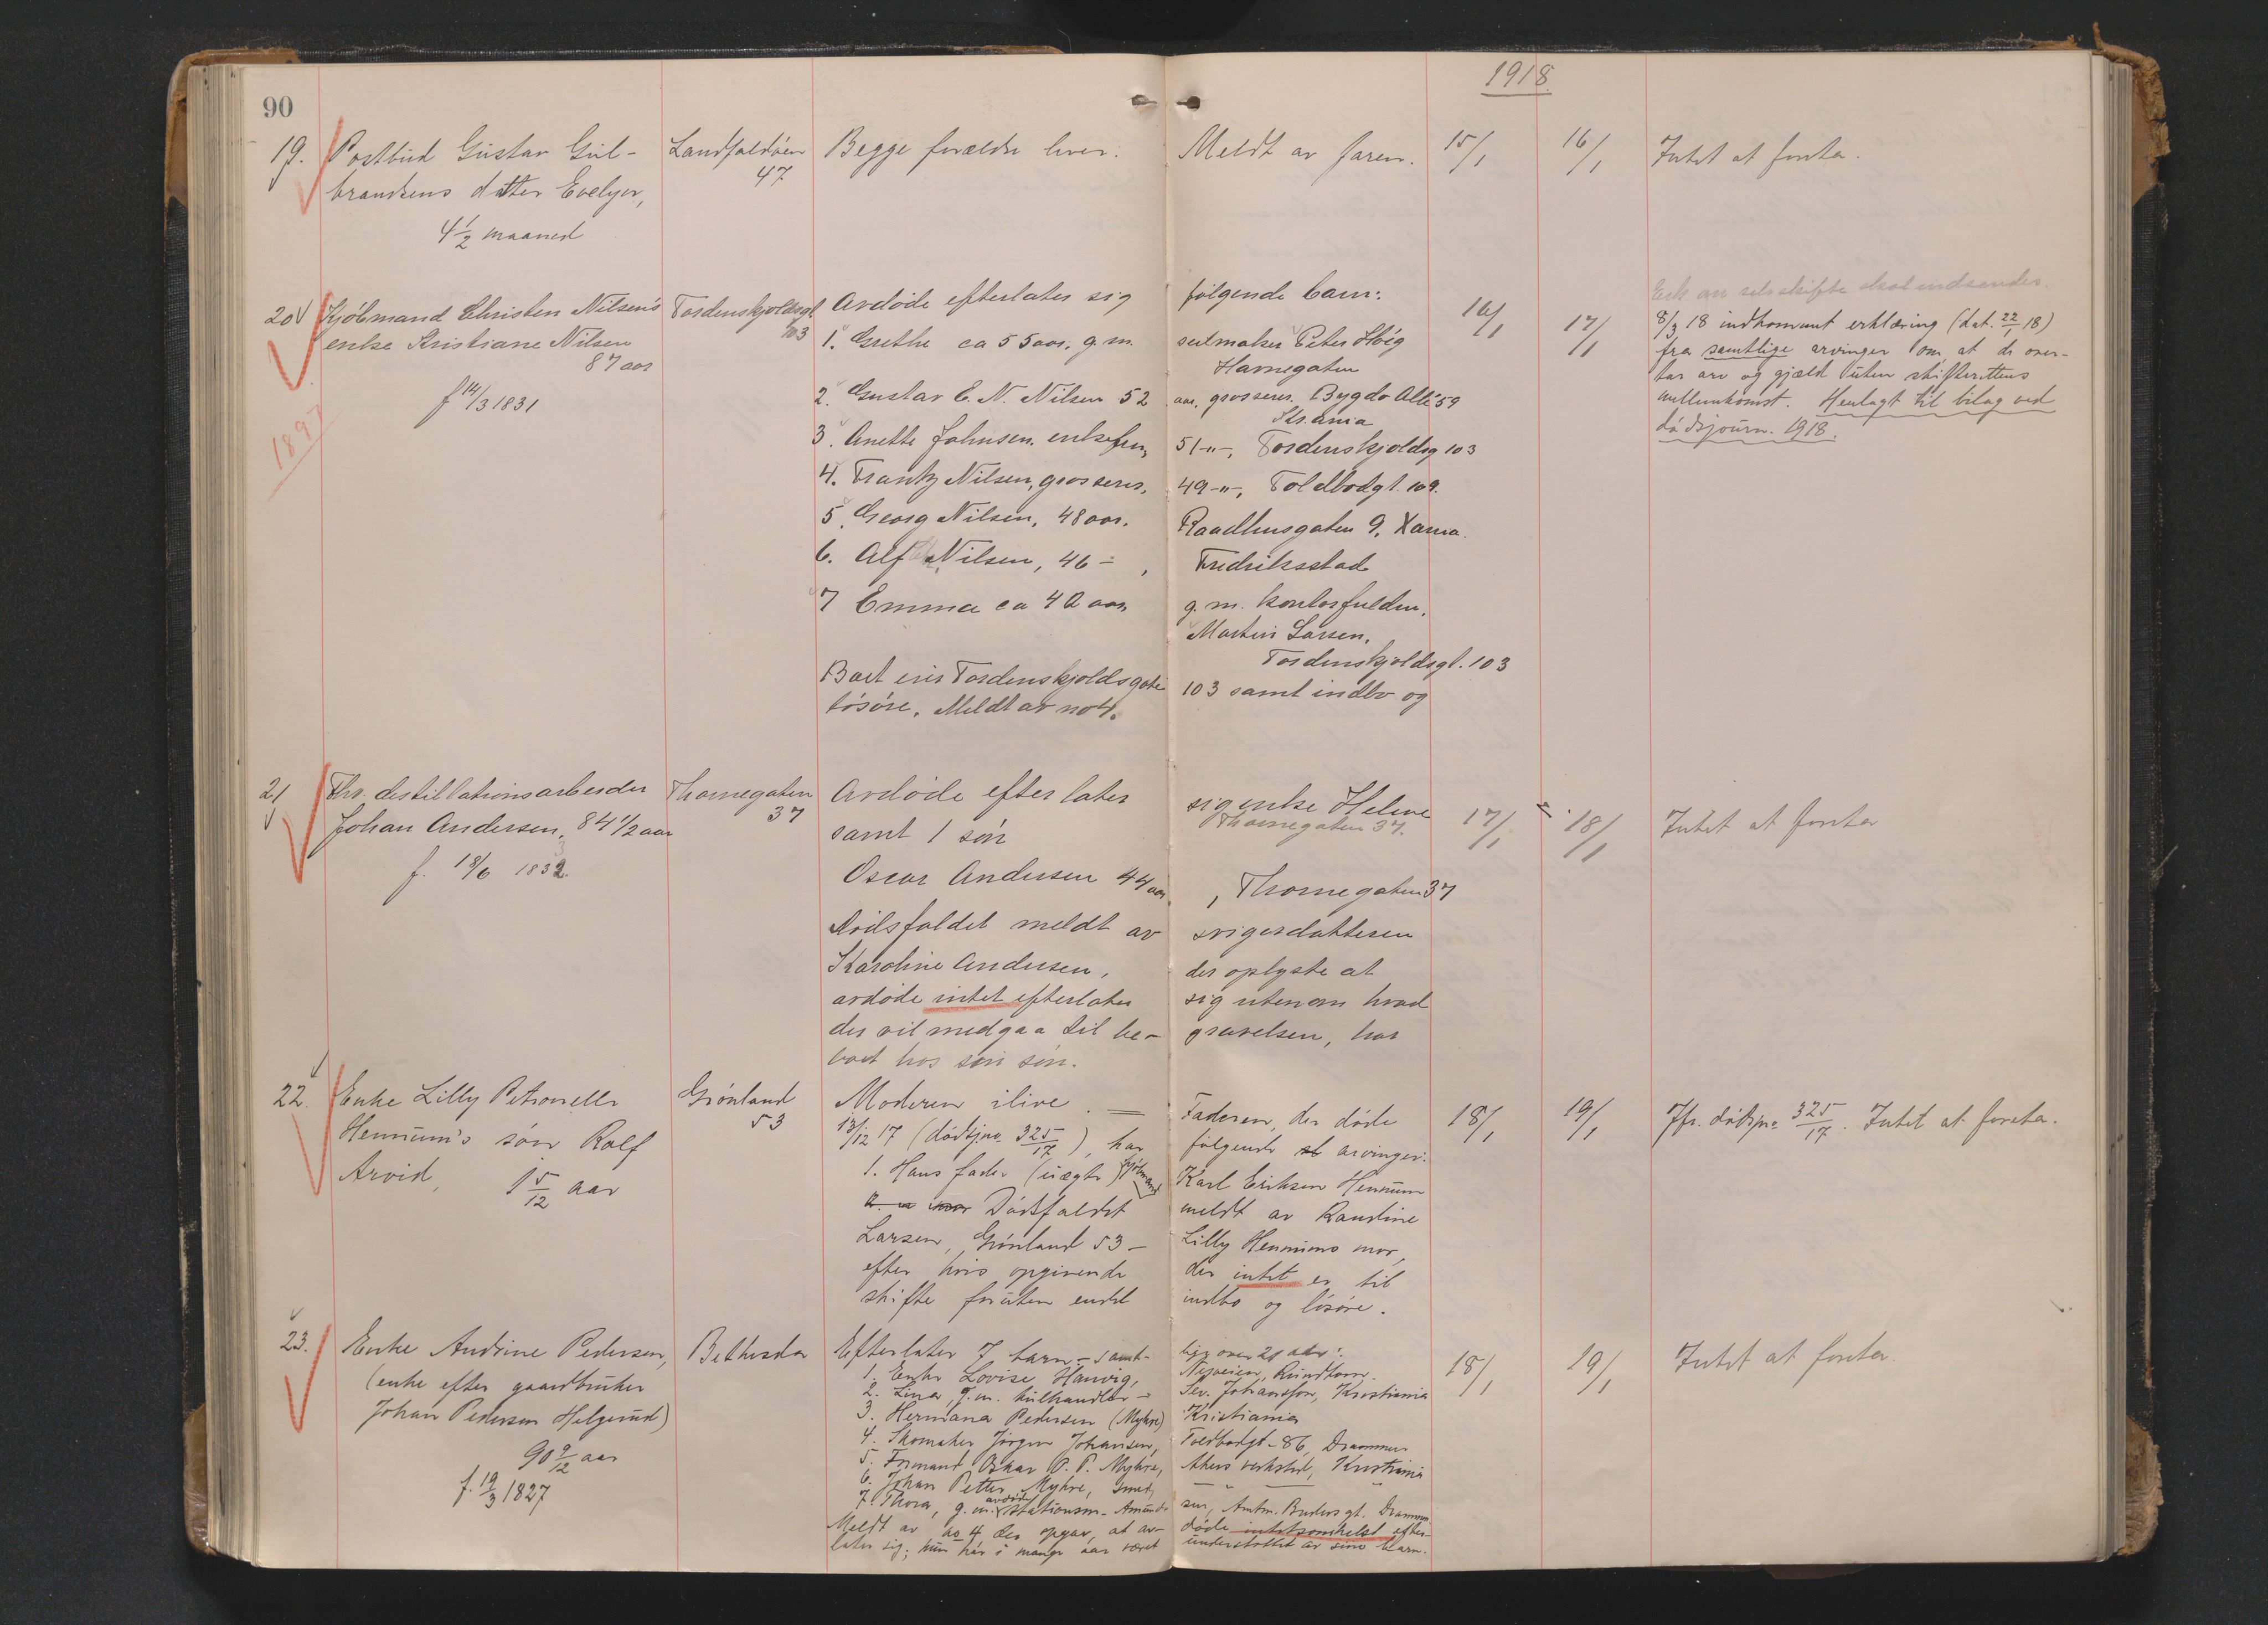 90
1918.
19. Postbud Gustav Gul- Landfaldøen Begge forældre lever. Meldt av faren. 15/1 16/1 Intet at foreta.
brandsens datter Evelyn, 47
4 1/2 maaned
20 Kjøbmand Christen Nilsen's Tordenskjoldsgt Avdøde efterlater sig følgende barn: 16/1 17/1 Erk. om selvskifte skal indsendes.
enke Kristiane Nilsen 103 1. Grethe ca 55 aar. g. m. seilmaker Peter Høeg 8/3 18 indkommet erklæring (dat. 22/1 18)
87 aar Havnegaten fra samtlige arvinger om, at de over-
f 14/3 1831 2. Gustav C. N. Nilsen 52 aar, grosserer. Bygdø Allé 59 tar arv og gjæld uten skifterettens
1897 Kr.ania mellemkomst. Henlagt til bilag ved
3. Anette Johnsen. enkefru, 51 -"-, Tordenskjoldsg 103 dødsjourn. 1918.
4. Frantz Nilsen, grosserer, 49 -"-, Toldbodgt. 109.
5. Georg Nilsen, 48 aar. Raadhusgaten 9. Xania.
6. Alf Nilsen, 46 -, Fredriksstad
7 Emma ca 40 aar g. m. kontorfuldm.
Martin Larsen.
Tordenskjoldsgt. 103
Boet eier Tordenskjoldsgate 103 samt indbo og
løsøre. Meldt av no 4.
21 Fhv. destillationsarbeider Thornegaten Avdøde efterlater sig enke Helene 17/1 18/1 Intet at foreta
Johan Andersen, 84 1/2 aar 37 samt 1 søn Thornegaten 37.
f. 18/6 1832. Oscar Andersen 44 aar, Thornegaten 37
Dødsfaldet meldt av svigerdatteren
Karoline Andersen, der oplyste at
avdøde intet efterlater sig utenom hvad
der vil medgaa til be- gravelsen, har
boet hos sin søn.
22. Enke Lilly Petronelle Grønland Moderen ilive. — Faderen, der døde 18/1 19/1 Jfr. dødsjno 325/17. Intet at foreta.
Hennum's søn Rolf 53 13/12 17 (dødsjno. 325/17), har følgende arvinger:
Arvid, 1 5/12 aar 1. Hans fader (uægte) kjøbmand Karl Eriksen Hennum
Dødsfaldet meldt av Randine
Larsen, Grønland 53 - Lilly Hennums mor,
efter hvis opgivende der intet er til
skifte foruten endel indbo og løsøre.
23. Enke Andrine Pedersen, Bethesda Efterlater 7 barn - samt- lige over 21 aar: 18/1 19/1 Intet at foreta.
(enke efter gaardbruker 1. Enke Lovise Hanvig, Nesveien, Rundtom.
Johan Pedersen Helgerud) 2. Lina, g. m. kulhandler Sev. Johansson, Kristiania
90 9/12 aar 3. Hermana Pedersen (Myhre) Kristiania
f. 19/3 1827 4. Skomaker Jørgen Johansen, Toldbodgt. 86, Drammen
5. Formand Oskar P. P. Myhre, Akers verksted, Kristiania
6. Johan Petter Myhre, smed, — " —
7. Thora, g. m. avdøde stationsm. Amund- sen, Amtm. Bloms gt. Drammen.
Meldt av no 4 der opgav, at av- døde intetsomhelst efter-
later sig; hun har i mange aar været understøttet av sine barn.